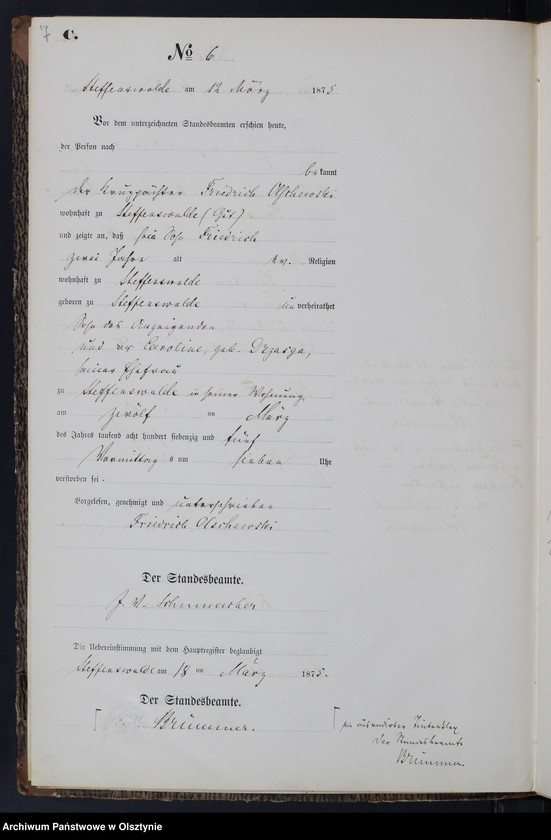 7
C.
No 6
Steffenswalde am 12 März 1875
Vor dem unterzeichneten Standesbeamten erschien heute,
der Person nach
bekannt
der Krugpächter Friedrich Olschewski
wohnhaft zu Steffenswalde (Gut)
und zeigte an, daß sein Sohn Friedrich
zwei Jahre alt ev. Religion
wohnhaft zu Steffenswalde
geboren zu Steffenswalde unverheirathet
Sohn des Anzeigenden
und der Caroline, geb. Dzzasga,
seiner Ehefrau
zu Steffenswalde in seiner Wohnung
am zwölf ten März
des Jahres tausend acht hundert siebenzig und fünf
Vormittags um sieben Uhr
verstorben sei.
Vorgelesen, genehmigt und unterschrieben
Friedrich Olschewski
Der Standesbeamte.
J. V. Schumacher
Die Uebereinstimmung mit dem Hauptregister beglaubigt
Steffenswalde am 18 ten März 1875.
Der Standesbeamte.
Brümmer.
Der Standesbeamte
Brümmer.
Archiwum Państwowe w Olsztynie